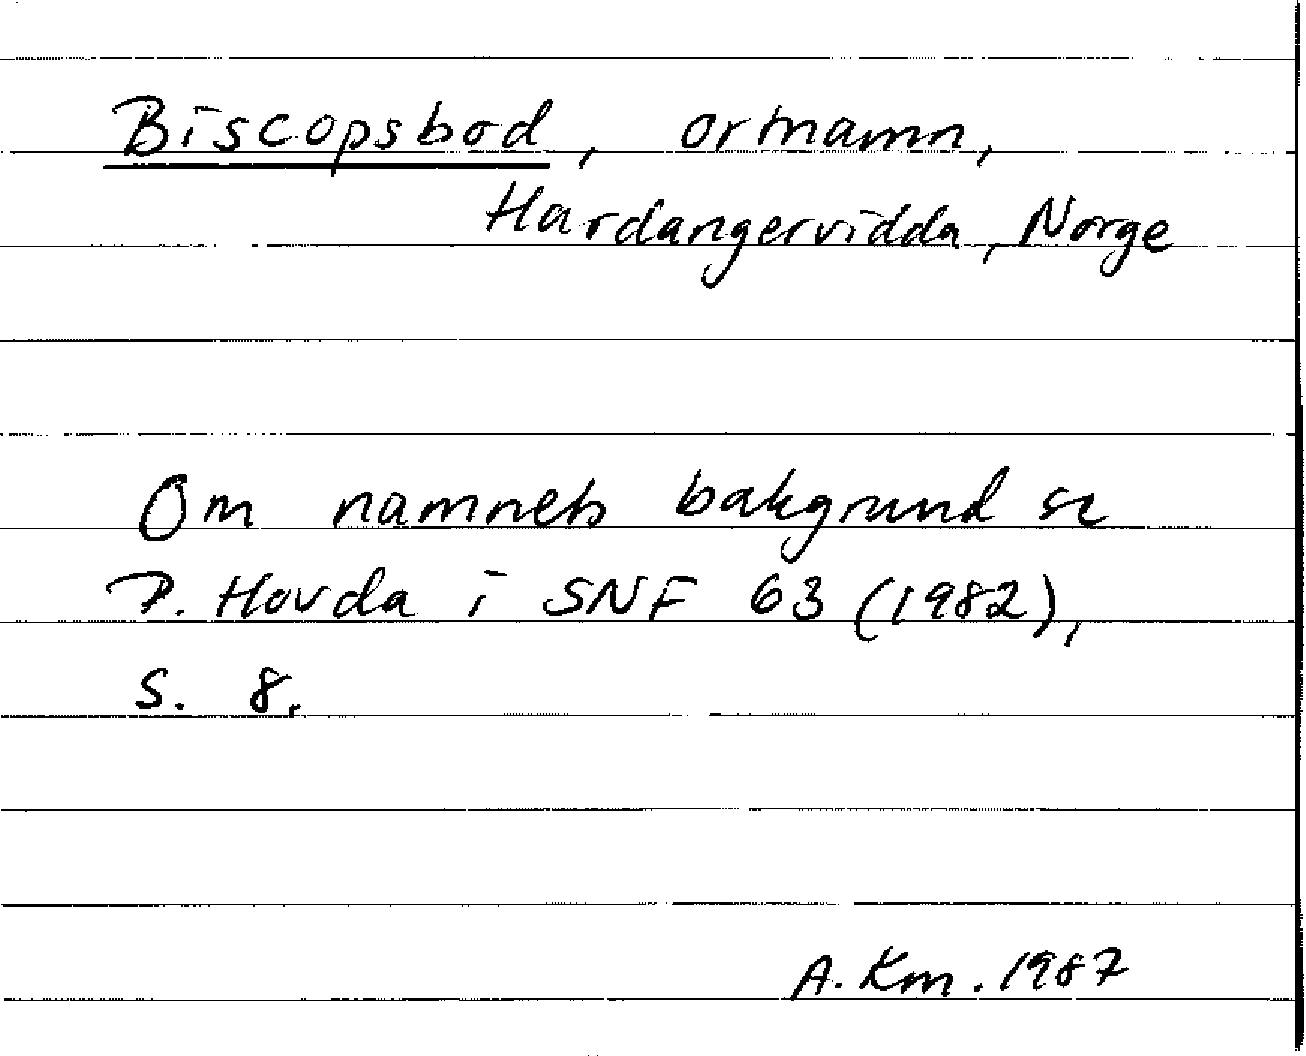 Biscopsbod, ortnamn,
Hardangervidda, Norge
Om namnets bakgrund se
P. Hovda i SNF 63 (1982),
s. 8.
A. Km. 1987